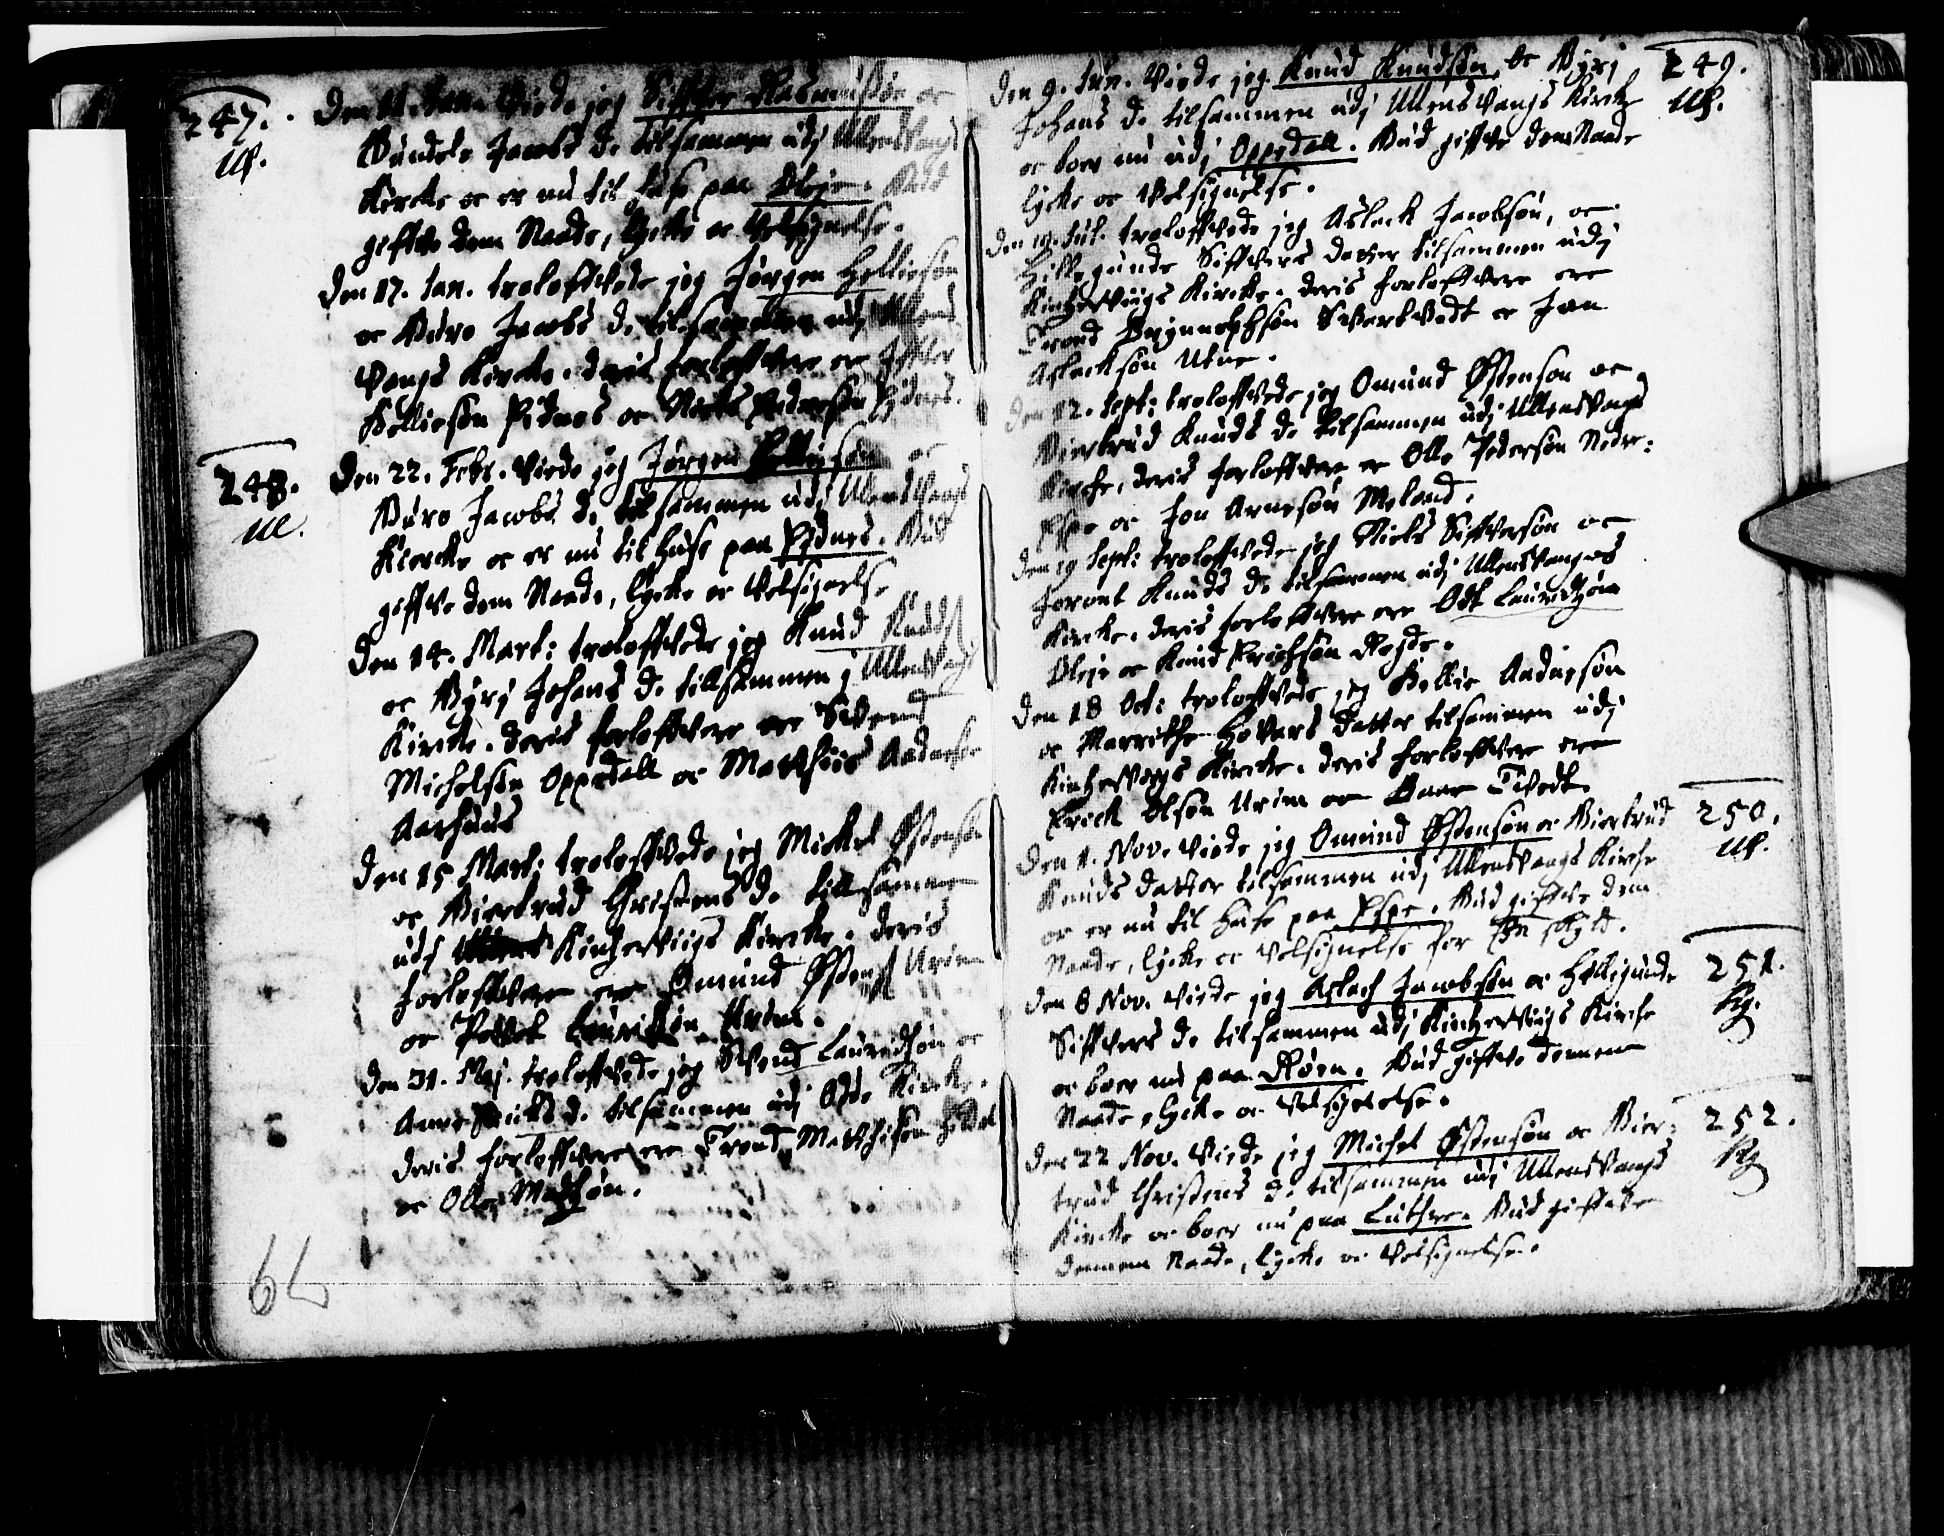 247.
Ul.
Den 11. Jan. Viede jeg Siffver Rasmussøn oc
Gundele Jacobs D. tilsammen udj Ullensvangs
Kircke oc er nu til huse paa Bleje. Gud
giffve dem Naade, lycke oc Velsignelse.
Den 17. Jan. troloffvede jeg Jørgen Helliesøn
oc Guro Jacobs D. tilsammen udj Ullens-
vangs Kircke. deris forloffvere ere
Helliesøn Ejdnes oc Niels Pedersøn Ejdnes.
248.
Ul.
Den 22. Febr. Viede jeg Jørgen Helliesøn oc
Guro Jacobs D. tilsammen udj Ullensvangs
Kircke oc er nu til huse paa Ejdnes. Gud
giffve dem Naade, lycke oc Velsignelse
Den 14. Mart: troloffvede jeg Knud Knuds.
oc Gyrj Johans D. tillsammen j Ullensvangs
Kircke. deris forloffvere ere Svend
Michelsøn Oppedall oc Matthiis
Aarhuus
Den 15 Mart: troloffvede jeg Mickel Østensøn
oc Giertrud Christens D. tillsammen
udj Kintzerviigs Kircke. deris
forloffvere ere Omund Østens.
oc Lauritsøn
Den 31. Maj. troloffvede jeg Svend Lauridsøn oc
Anne D. tilsammen udj Odde Kircke.
deris forloffvere ere Trond Matthisøn
oc Olle Madsøn.
66
249.
Ul.
Den 9. Jun. Viede jeg Knud Knudsøn oc Gyrj
Johans D. tilsammen udj Ullensvangs Kircke
oc boer nu udj Oppedall. Gud giffve dem Naade
lycke oc Velsignelse.
Den Jul. troloffvede jeg Aslack Jacobsøn, oc
Hillegunde Siffvers datter tilsammen udj
Kintzerviigs Kircke. deris forloffvere ere
Trond Brynnelphsøn oc Jon
Aslacksøn Utne.
Den 12. Sept: troloffvede jeg Omund Østensøn oc
Giertrud Knuds D. tilsammen udj Ullensvangs
Kircke, deris forloffvere er Olle Pedersøn Nedre:
Espe oc Jon Arnesøn Meland.
Den 19 Sept: troloffvede jeg Niels Siffversøn oc
Joront Knuds D. tilsammen udj Ullensvanges
Kircke. deris forloffvere ere Odt Lauridsøn
Bleje oc Knud Erichsøn
Den 18 Oct: troloffvede jeg Hellie
oc Marrithe Hovars datter tilsammen udj
Kintzervigs Kircke. deris forloffvere ere
Erick Olsøn Urim oc Tvedt.
250.
Ul.
Den 1. Nov. viede jeg Omund Østensøn oc Giertrud
Knuds datter tilsammen udj Ullensvangs Kircke
oc er nu til huse paa Espe. Gud giffve dem
Naade, lycke oc Velsignelse for
251.
Kg.
Den 8 Nov. viede jeg Aslach Jacobsøn oc Hillegunde
Siffvers D. tilsammen udj Kintzervigs Kircke
oc boer nu paa Gud giffve dennem
Naade, lycke oc Velsignelse.
252.
Kg
Den 22 Nov. Viede jeg Michel Østensøn oc Gier-
trud Christens D. tilsammen udj Ullensvangs
Kircke oc boer nu paa Lutre. Gud giffve
dennem Naade, lycke oc Velsignelse.